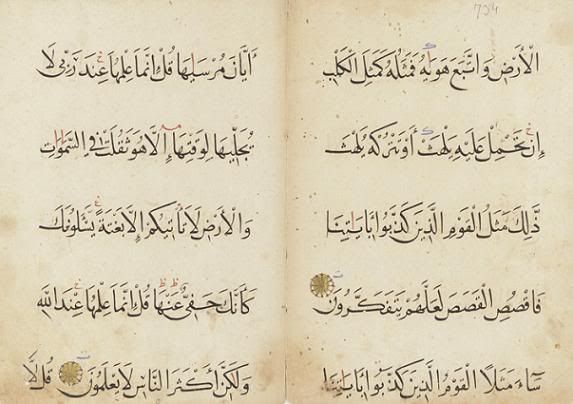 الْأَرْضِ وَاتَّبَعَ هَوٰيهُ فَمَثَلُهُ كَمَثَلِ الْكَلْبِ
إِن تَحْمِلْ عَلَيْهِ يَلْهَثْ أَوْ تَتْرُكْهُ يَلْهَثْ
ذَّلِكَ مَثَلُ الْقَوْمِ الَّذِينَ كَذَّبُوا بِاٰيَاتِنَا
فَاقْصُصِ الْقَصَصَ لَعَلَّهُمْ يَتَفَكَّرُونَ
سَآءَ مَثَلًا الْقَوْمُ الَّذِينَ كَذَّبُوا بِاٰيَاتِنَا
أَيَّانَ مُرْسٰيهَا قُلْ إِنَّمَا عِلْمُهَا عِنْدَ رَبِّي لَا
يُجَلِّيهَا لِوَقْتِهَا إِلَّا هُوَ ثَقُلَتْ فِي السَّمٰوَاتِ
وَالْأَرْضِ لَا تَأْتِيكُمْ إِلَّا بَغْتَةً يَسْئَلُونَكَ
كَأَنَّكَ حَفِيٌّ عَنْهَا قُلْ إِنَّمَا عِلْمُهَا عِنْدَ اللّٰهِ
وَلٰكِنَّ أَكْثَرَ النَّاسِ لَا يَعْلَمُونَ قُلْ لَا